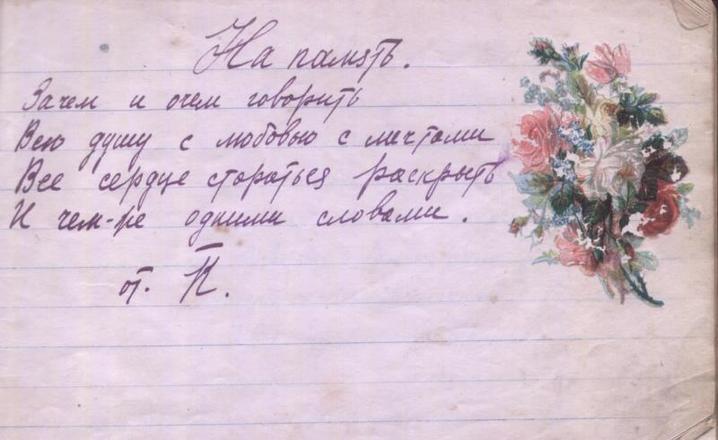 На память.
Зачем и очем говорить
Всю душу с любовью с мечтами
Все сердце стораться раскрыть
И чем-же одними словами.
от. К.